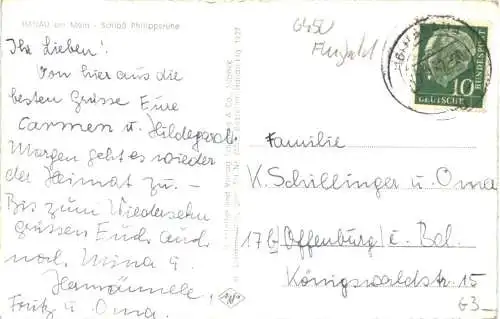 HANAU am Main - Schloß Philippsruhe
Ihr Lieben!
Von hier aus die
besten Grüsse Eure
Carmen u. Hildegard.
Morgen geht es wieder
der Heimat zu. -
Bis zum Wiedersehn
grüssen Euch auch
noch Mina u.
Hannemle,
Fritz u. Oma.
6450
Familie
K. Schillinger u. Oma
17b Offenburg i. Bd.
Königswaldstr. 15
G3-
10
DEUTSCHE
BUNDESPOST